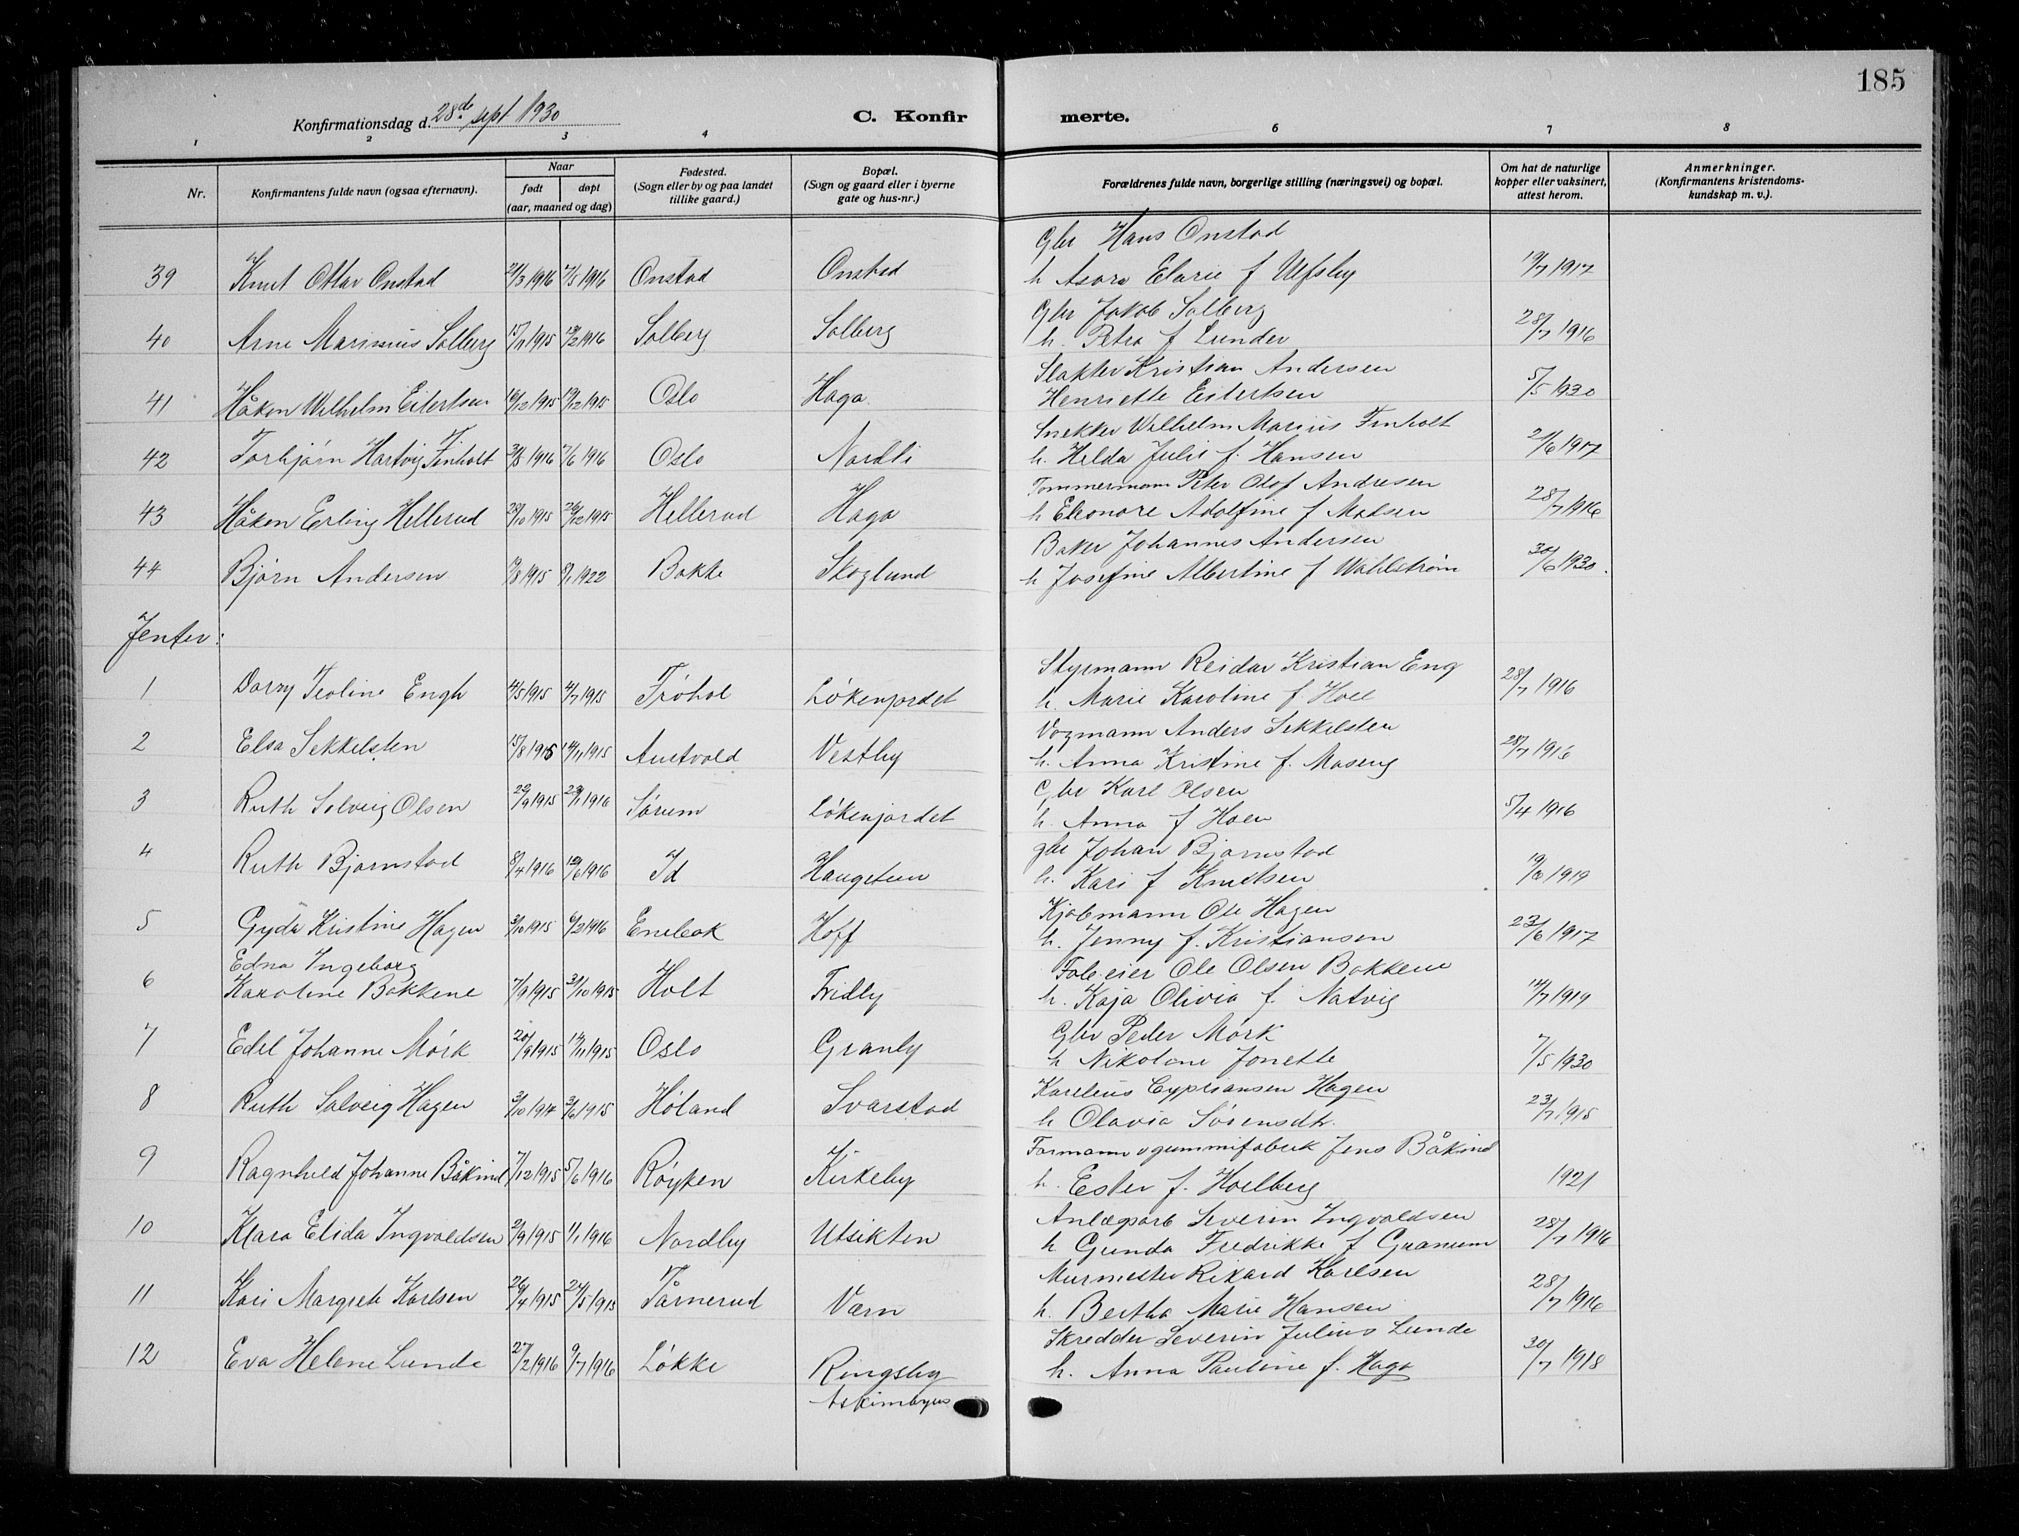 185
Konfirmationsdag d. 28de sept 1930
C. Konfirmerte.
1 2 3 4 6 7 8
Nr. Konfirmantens fulde navn (ogsaa efternavn). Naar født døpt (aar, maaned og dag) Fødested. (Sogn eller by og paa landet tillike gaard.) Bopæl. (Sogn og gaard eller i byerne gate og hus-nr.) Forældrenes fulde navn, borgerlige stilling (næringsvei) og bopæl. Om hat de naturlige kopper eller vaksinert, attest herom. Anmerkninger. (Konfirmantens kristendoms-kundskap m. v.).
Gbr Hans Onstad
39 Knut Ottar Onstad 21/3 1916 7/5 1916 Onstad Onstad h Asora Elarie f Ulfsby 19/7 1917
Gbr Jakob Solberg
40 Arne Marinius Solberg 15/11 1915 13/2 1916 Solberg Solberg h. Petra f Lunder 28/7 1916
Slakter Kristian Andersen
41 Håkon Wilhelm Eilertsen 12 1915 12 1915 Oslo Haga Henriette Eilertsen 5/5 1930
Snekker Wilhelm Marius Finholt
42 Torbjørn Hartvig Finholt 1916 7/6 1916 Oslo Nordli h. Hilda Julie f. Hansen 21/6 1917
Tommermann Peter Olof Andresen
43 Håkon Erling Hellerud 28/10 1915 26/12 1915 Hellerud Haga h Eleonore Adolfine f Madsen 28/7 1916
Baker Johannes Andersen
44 Bjørn Andersen 8 1915 8/1 1922 Bakke Skoglund h Josefine Albertine f Wahlstrøm 30/6 1930.
Jenter:
Styrmann Reidar Kristian Eng
1 Dorzy Teoline Engh 4/5 1915 4/7 1915 Frøhol Løkenjordet h. Marie Karoline f Holl 28/7 1916
Vogmann Anders Sekkelsten
2 Elsa Sekkelsten 15/8 1915 14/11 1915 Austvold Vestby h. Anna Kristine f. Maseng 28/7 1916
Gbr Karl Olsen
3 Ruth Solveig Olsen 29/9 1915 23/1 1916 Sørum Løkenjordet h. Anna f Hoen 5/4 1916
gbr Johan Bjørnstad
4 Ruth Bjørnstad 8/4 1916 12/6 1916 Id Haugsteen h. Kari f Knutsen 1919
Kjøbmann Ole Hagen
5 Gyda Kristine Hagen 3/10 1915 6/2 1916 Enebak Hoff h. Jenny f. Kristiansen 23/6 1917
Edna Ingeborg Fab.eier Ole Olsen Bakkene
6 Karoline Bakkene 7/9 1915 31/10 1915 Holt Fridly h. Kaja Olivia f. Natvig 14/7 1919
Gbr Peder Mørk
7 Edel Johanne Mørk 20/9 1915 14/11 1915 Oslo Granly h Nikoline Jonette 7/5 1930
Karelius Cypriansen Hagen
8 Ruth Solveig Hagen 3/10 1914 3/6 1915 Høland Svarstad h Olavia Sørensdtr. 23/7 1915
Formann v gummifabrik Jens Båkind
9 Ragnhild Johanne Båkind 7/12 1915 5/6 1916 Røyken Kirkeby h. Ester f. Hollberg 1921
Anlægsarb Severin Ingvaldsen
10 Klara Elida Ingvaldsen 2/9 1915 1/1 1916 Nordby Utsikten h Gunda Fredrikke f Granum 28/7 1916
Murmester Rikard Karlsen
11 Kari Margrete Karlsen 26/4 1915 24/5 1915 Tårnerud Værn h. Bertha Marie Hansen 28/7 1916
Skredder Severin Julius Lunde
12 Eva Helene Lunde 27/2 1916 9/7 1916 Løkke Ringsby h. Anna Pauline f. Haga 30/7 1918
Askimbyen